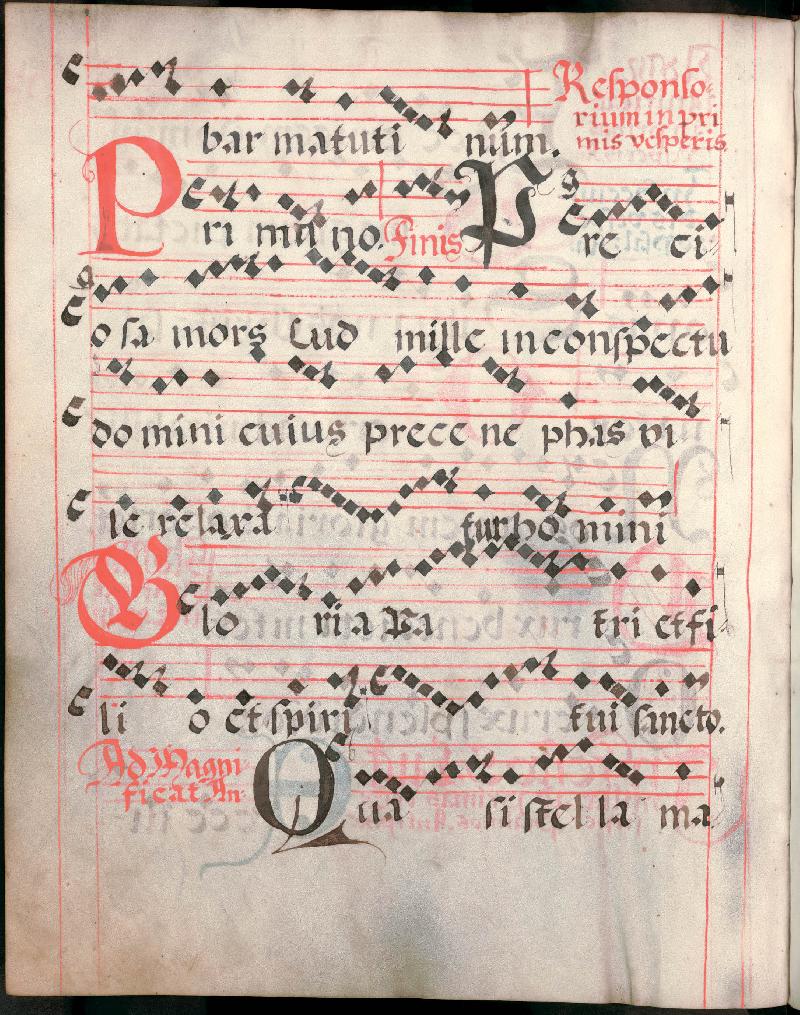 bar matuti núm. Responso-
rium in pri
mis vesperis
Pri mú no. Finis Pre ci
o sa mors Lud mille in conspectu
do mini cuius prece ne phas vi
le relaxa tur ho mini
Glo ria Pa tri et fi
li o et spiri tui sancto.
Ad Magni
ficat. An. Qua si stel la ma